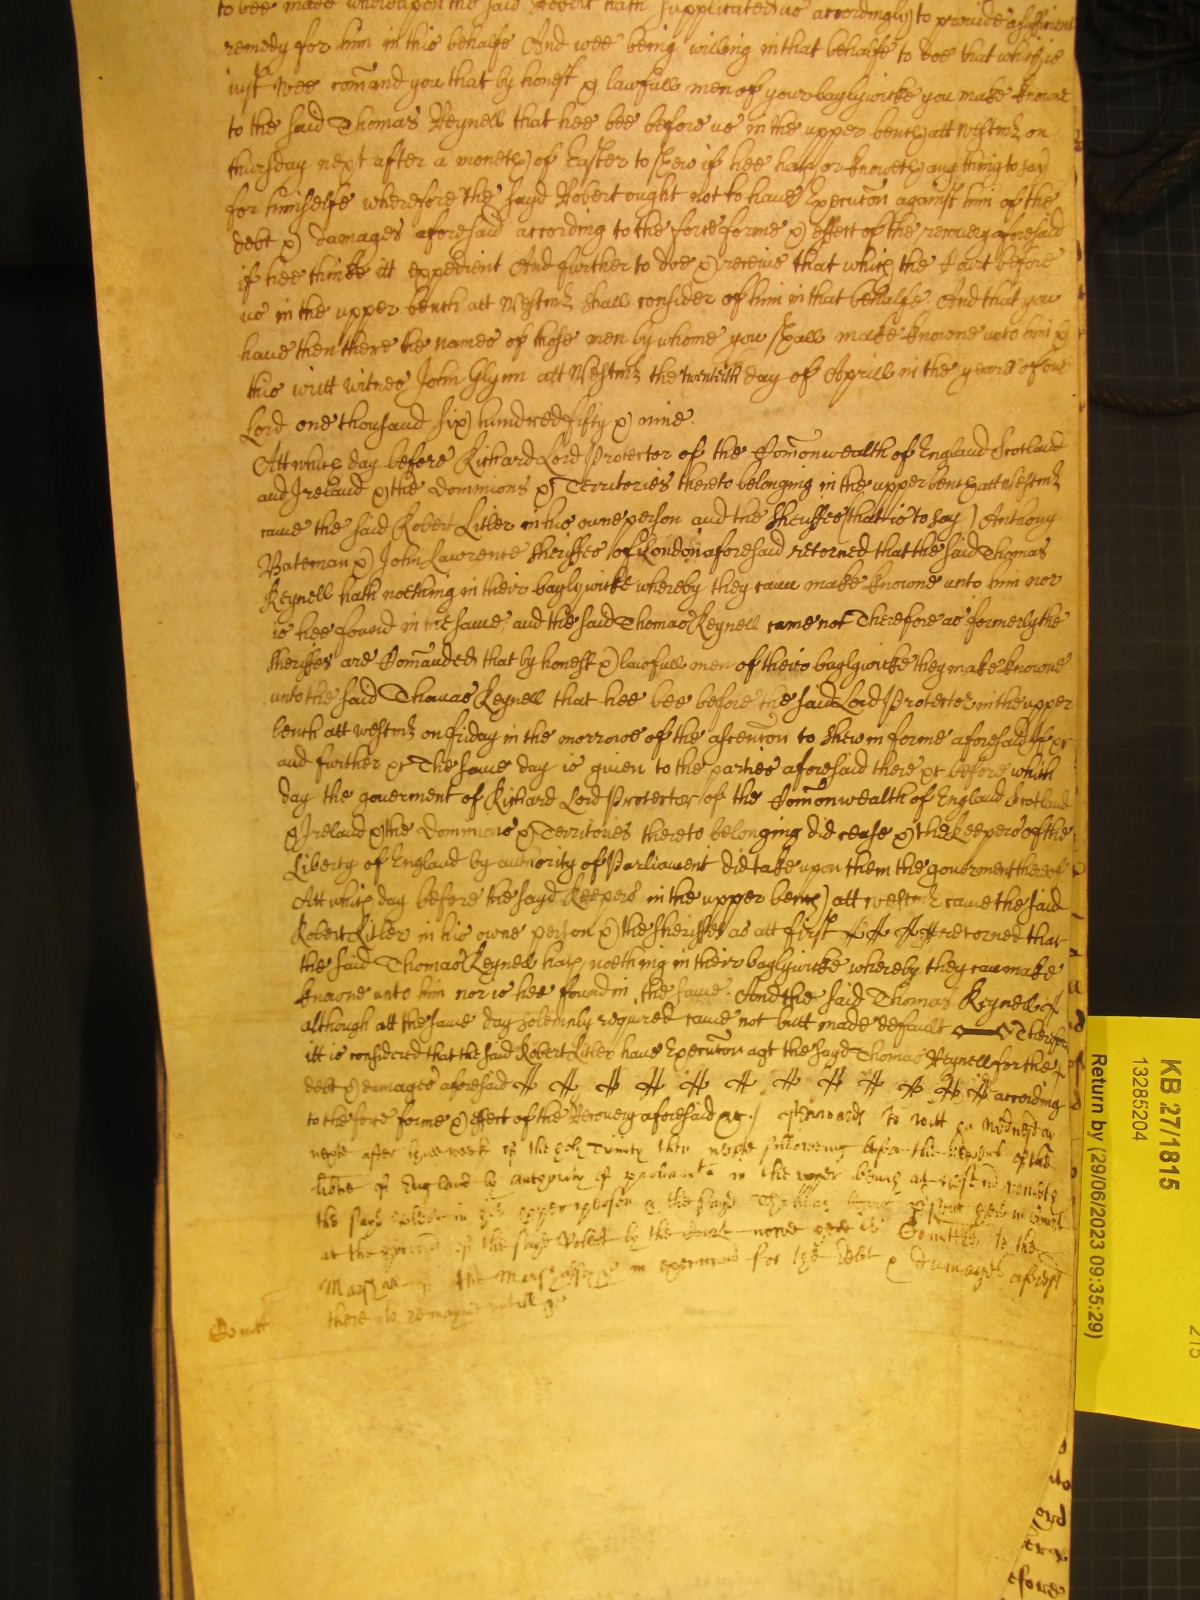 to bee made whereupon the said Robert hath supplicated us accordingly to provide a sufficient
remedy for him in this behalfe And wee being willing in that behalfe to doe that which is
just Wee comand you that by honest & lawfull men of your baylywicke you make knowne
to the said Thomas Reynell that hee bee before us in the upper bench att Westmr on
thursday next after a moneth of Easter to shew if hee hath or knoweth any thing to say
for himselfe wherefore the sayd Robert ought not to have Execucon against him of the
debt & damages aforesaid according to the force forme & effect of the recovery aforesaid
if hee thinke itt expedient And further to doe & receive that which the Court before
us in the upper bench att Westmr shall consider of him in that behalfe. And that you
have then there the names of those men by whome you shall make knowne unto him &
this writt witnes John Glynn att Westmr the twentieth day of Aprill in the yeare of our
Lord one thousand six hundred fifty & nine.
Att which day before Richard Lord Protector of the Comonwealth of England Scotland
and Ireland & the Dominions & Territories thereto belonging in the upper bench att Westmr
came the said Robert Litler in his owne person and the Sheriffes (that is to say) Anthony
Bateman & John Lawrence Sheriffes of London aforesaid retorned that the said Thomas
Reynell hath nothing in theire baylywicke whereby they can make knowne unto him nor
is hee found in the same, and the said Thomas Reynell came not Therefore as formerly the
Sheriffes are Comanded that by honest & lawfull men of theire baylywicke they make knowne
unto the said Thomas Reynell that hee bee before the said Lord Protector in the upper
bench att westmr on friday in the morrowe of the ascencon to shew in forme aforesaid if &c
and further &c The same day is given to the parties aforesaid there &c before which
day the goverment of Richard Lord Protector of the Comonwealth of England Scotland
& Ireland & the Dominions & Territories thereto belonging did cease & the keepers of the
Liberty of England by authority of Parliament did take upon them the goverment thereof
Att which day before the sayd Keepers in the upper bench att westmr came the said
Robert Litler in his owne person & the Sheriffes as att first retorned that
the said Thomas Reynell hath noething in theire baylywicke whereby they can make
knowne unto him nor is hee found in the same. And the said Thomas Reynell
although att the same day solemnly required came not butt made default Therefore
itt is considered that the said Robert Litler have Execucon agt the sayd Thomas Reynell for the
debt & damages aforesaid according
to the force forme & effect of the Recovery aforesaid &c. / afterwards to witt on Wednesday
next after three weeks of the holy Trinity then next following before the keepers of the
libtie of England by autority of parliamt in the upper bench at westmr cometh
the sayd Robert in his proper person & the sayd Thomas being present here in Court
at the of the sayd Robert by the Court here is Comitted to the
Marshall of the Marshalsie in execucon for the debt & damages aforesd
there to remayne untill &c
Comitt
KB 27/1815
13285204
Return by (29/06/2023 09:35:29)